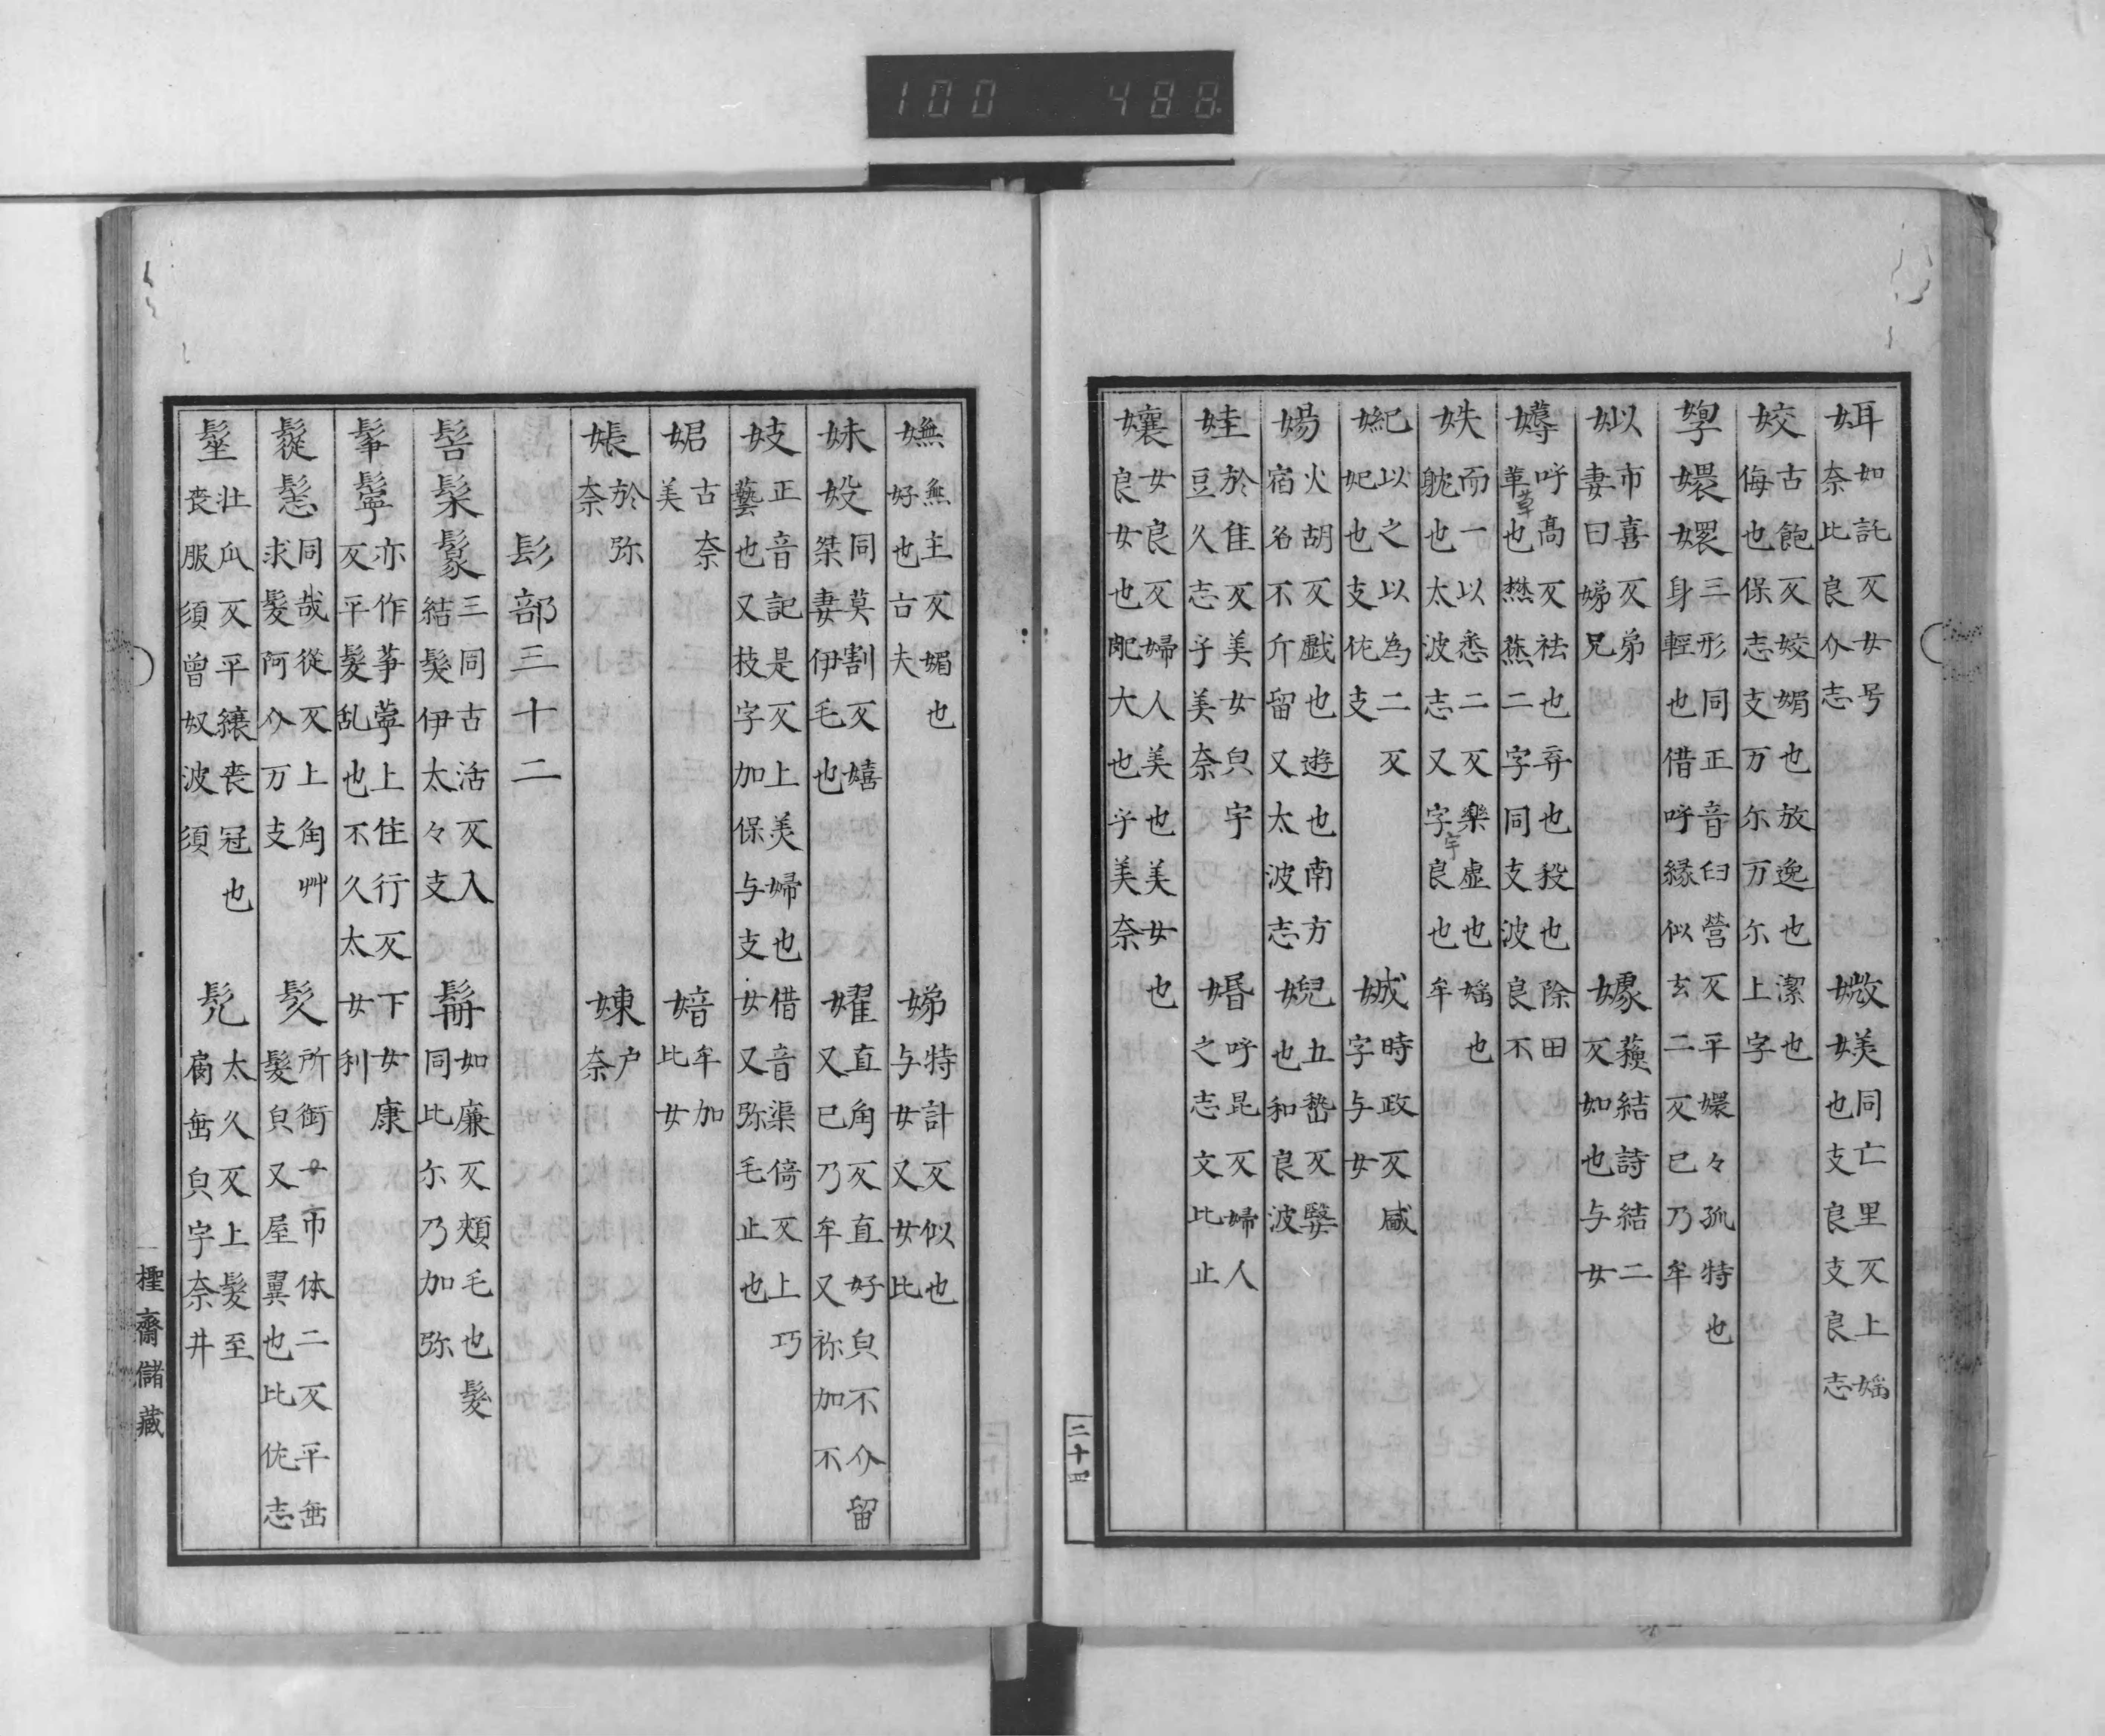 㛅 如託反女号
奈比良尒志
媺媄 同亡里反上婬
也支良支良志
姣 古飽反姣媚也放逸也潔也
侮也保志支万尓万尓上字
嬛 三形同正音臼營反平嬛々孤特也
身輕也借呼緣似玄二反已乃牟
姒 市喜反弟
妻曰娣兄
蘓結詩結二
反如也与女
媷 呼髙反祛也弃也殺也除田
草也 二字同支波良不
妷 而一以悉二反樂虛也婬也
躭也太波志又字宇良也牟
以之以為二反
妃也支佐支
娍 時政反
字与女
婸 火胡反戲也遊也南方
宿名不介留又太波志
婗 五嵆反嫛
也和良波
娃 於隹反美女皃宇
豆久志乎美奈
婚 呼昆反婦人
之志文比止
孃 女良反婦人美也美女也
良女也肥大也乎美奈
二十四
嫵 無主反媚也
好也古夫
娣 特計反似也
与女又女比
妺 同莫割反嬉
桀妻伊毛也
嬥 直角反直好皃不介留
又已乃牟又祢加不
妓 正音記是反上美婦也借音渠倚反上巧
藝也又技字加保与支女又弥毛止也
㛃 古奈
美
婄 牟加
比女
於弥
奈
娻 户
奈
髟部三十二
髻 三同古活反入
結髮伊太々支
髯 如廉反頰毛也髮
同比尓乃加弥
髼 亦作 上住行反下女康
反平髮乱也不久太女利
同哉從反上角艸
求髮阿介万支
所銜 市体二反平垂
髮皃又屋翼也比佐志
髽 壮瓜反平纕喪冠也
喪服須曽奴波須
髧 太久反上髮至
肩垂皃宇奈井
㯳齋儲藏
100 488